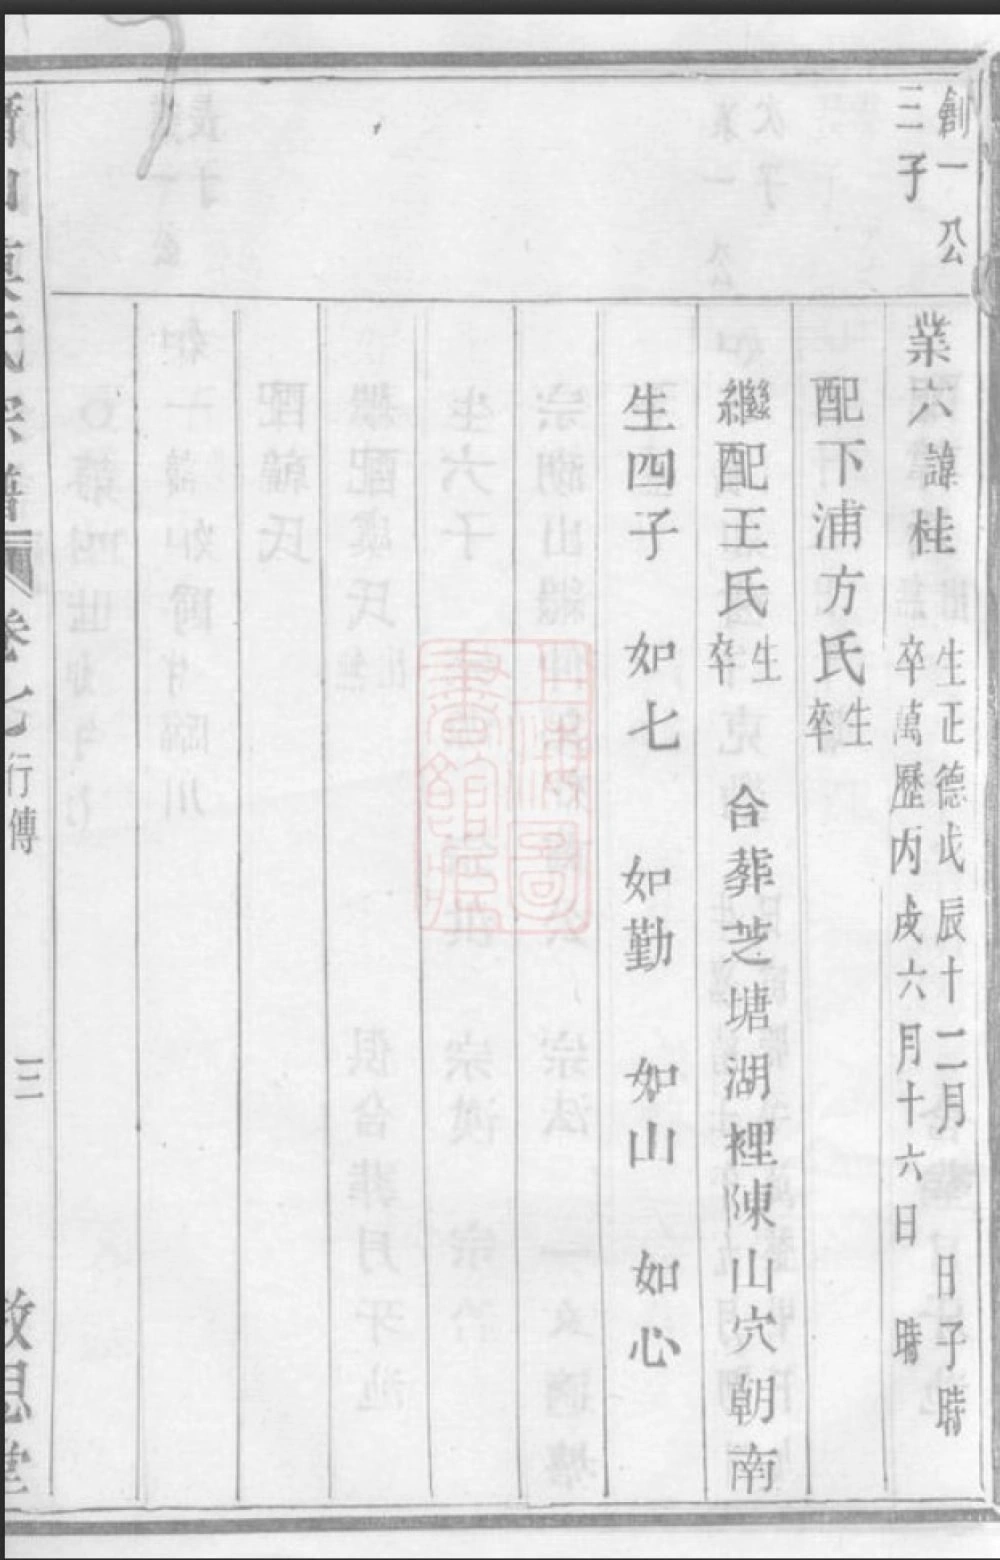 創一公
三子
業六諱桂
生正德戊辰十二月 日子時
卒萬歷丙戌六月十六日 時
配下浦方氏
生
卒
繼配王氏
生
卒
合葬芝塘湖裡陳山穴朝南
生四子 如七 如勤 如山 如心
氏宗譜 卷七 行傳 三 敦思堂
上海圖書館藏